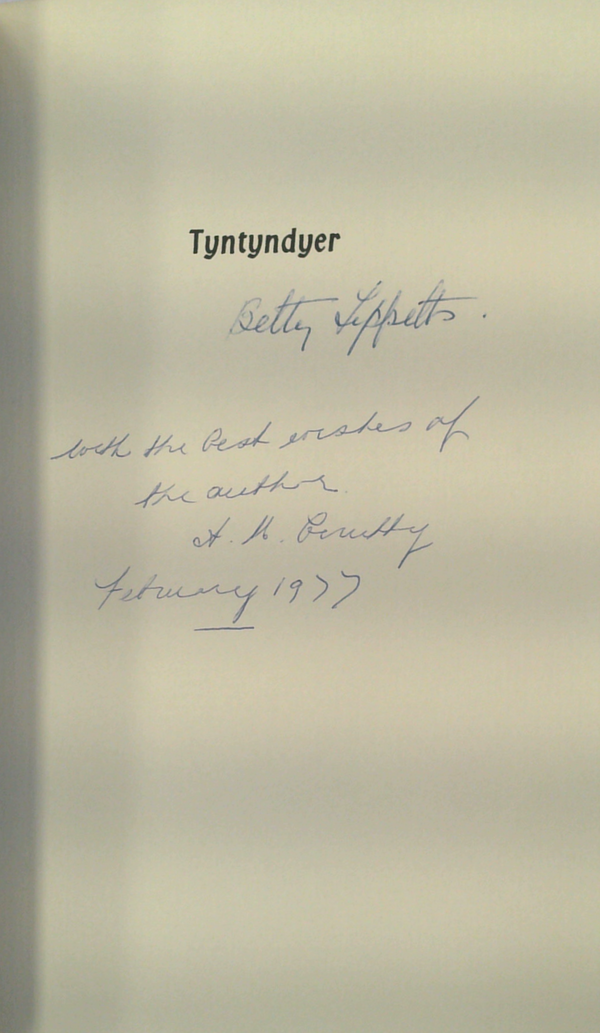 Tyntyndyer
Betty Lippetts.
with the best wishes of
the author.
February 1977